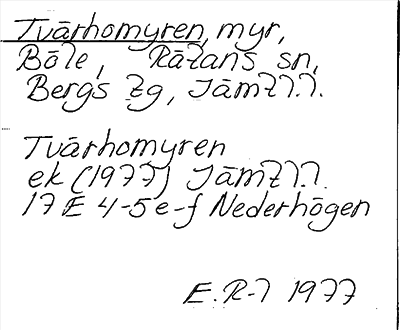 Tvärhomyren, myr,
Böle, Rätans sn,
Bergs tg, Jämtl.
Tvärhomyren
ek (1977) Jämtl.
17 E 4-5 e-f Nederhögen
E. R-l 1977